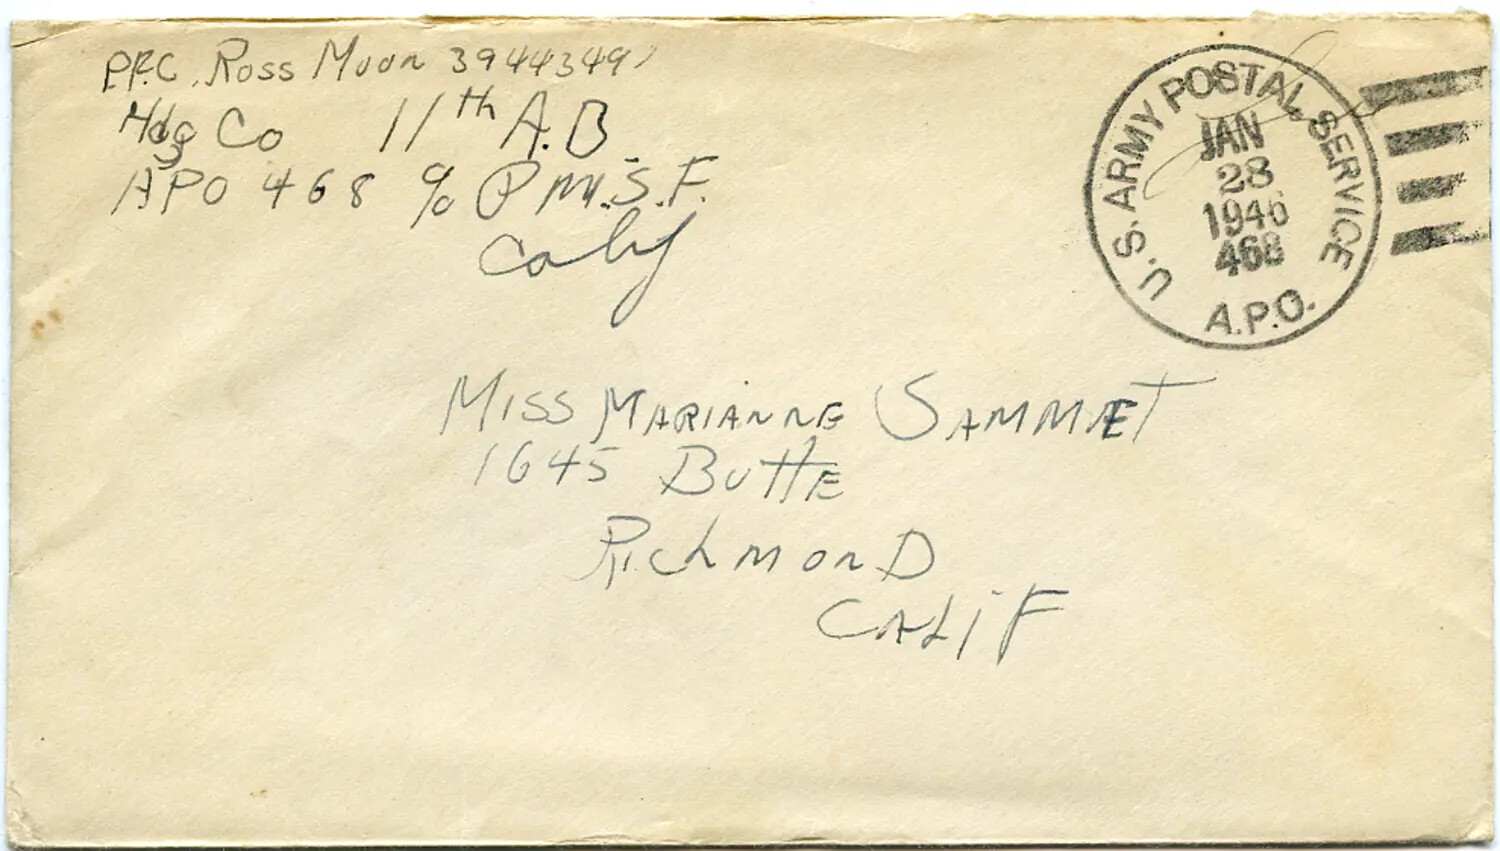 P.F.C. Ross Moon 39443497
Hdq Co 11th A.B
APO 468 c/o P M.S.F.
Calif
U.S. ARMY POSTAL SERVICE
JAN
28
1946
468
A.P.O.
Miss MARIANNE SAMMET
1645 ButtE
RichmonD
CALiF